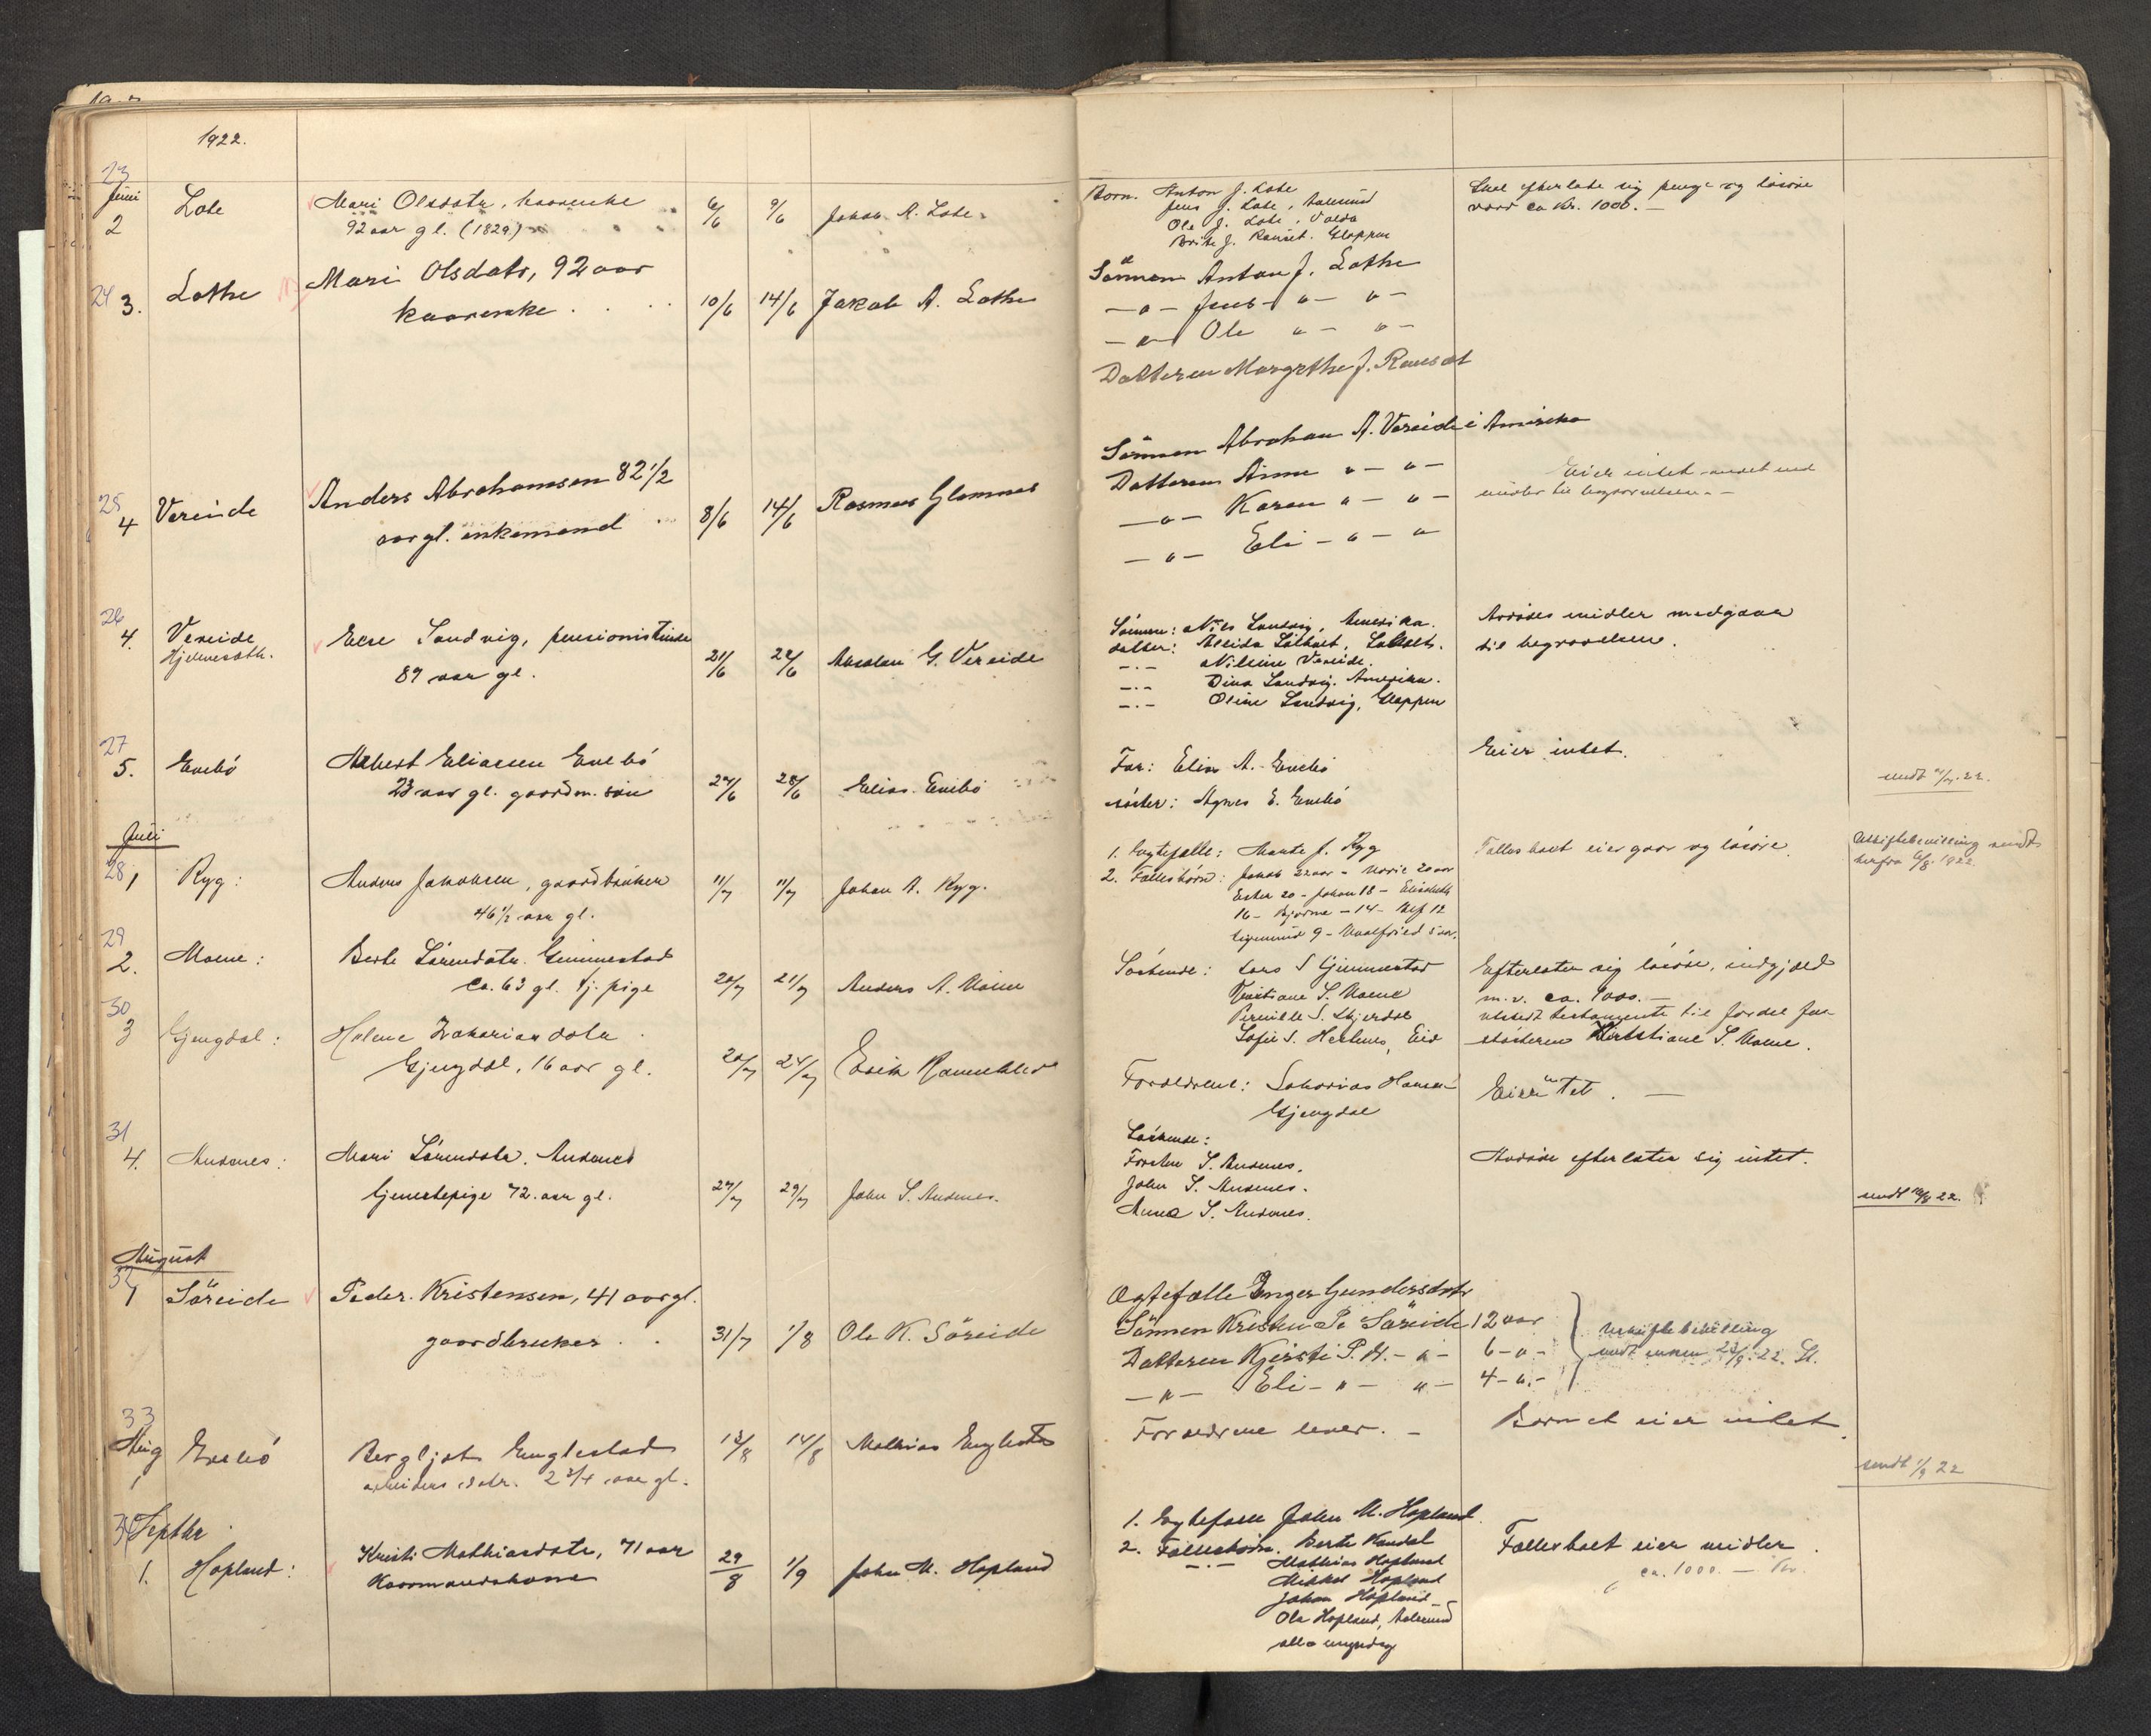 1922.
23
Juni
2
Lote
Mari Olsdotr, kaarenke
92 aar gl. (1829)
6/6
9/6
Jakob A. Lote.
Børn. Anton J. Lote
Jens J. Lote, Aalesund
Ole J. Lote, Volda
Brite J. Ramset. Gloppen
Skal efterlate sig penge og løsøre
værd ca Kr. 1000.—
24
3.
Lothe
Mari Olsdatr, 92 aar
kaarenke
10/6
14/6
Jakob A. Lothe
Sønnen Anton J. Lothe
— " — Jens — " — " —
— " — Ole " — " —
Datteren Margrethe J. Ramsæt
25
4
Vereide
Anders Abrahamsen 82 1/2
aar gl. enkemand
8/6
14/6
Rasmus Glomnes
Sønnen Abraham A. Vereide i Amerika
Datteren Anne " — " —
— " — Karen " — " —
— " — Eli — " — "
Eier intet andet end
midler til begravelsen. —
26
4.
Vereide
Hjelmeseth.
Else Sandvig, pensionistinde
89 aar gl.
21/6
22/6
Absalon G. Vereide
Sønnen: Nils Sandvig, Amerika.
datter:
—.— Nilsine Vereide.
—.— Dina Sandvig. Amerika.
—.— Oline Sandvig, Gloppen
Avdødes midler medgaar
til begravelsen.
27
5.
Evebø
Albert Eliassen Evebø
23 aar gl. gaardm. søn
24/6
28/6
Elias Evebø
Far: Elias A. Evebø
søster: Agnes E. Evebø
Eier intet.
sendt 4/7.22.
Juli
28
1
Ryg:
Anders Jakobsen, gaardbruker
46 1/2 aar gl.
11/7
11/7
Johan A. Ryg.
1. Egtefælle: Marte J. Ryg
2. Fællesbørn: Jakob 22 aar - Marie 20 aar
Ester 20 - Johan 18 - Elisabeth
16 - Bjarne - 14 - Alf 12
Sigmund 9 - Valfried 5 aar.
Fællesboet eier gaar og løsøre.
Uskiftebevilling sendt
herfra 6/8. 1922
29
2.
Moene:
Berte Sørensdtr. Gimmestad
ca. 63 gl. tj. pige
20/7
21/7
Anders A. Moene
Søskende: Lars S Gimmestad
Kristiane S. Moene
Pernille S. Skjerdal
Sofie S. Hestnes, Eid
Efterlater sig løsøre, indgjæld
m. v. ca. 1000.—
utstedt testamente til fordel for
søsteren Kristiane S. Moene.
30
3
Gjengdal:
Helene Zakariasdotr
Gjengdal, 16 aar gl.
20/7
24/7
Forældrene: Sakarias Hansen
Gjengdal
Eier intet. —
31
4.
Andenes:
Mari Sørensdotr. Andenes
tjenestepige 72. aar gl.
27/7
29/7
John S. Andenes.
Søskende:
S. Andenes.
John S. Andenes.
Anne S. Andenes.
Avdøde efterlater sig intet.
sendt 12/8 22.
August
32
1
Søreide
Peder Kristensen, 41 aar gl.
gaardbruker
31/7
1/8
Ole K. Søreide
Ægtefælle Inger Gundersdotr
Sønnen Kristen P. Søreide 12 aar
Datteren Kjersti P. H. - " - 6 - " -
— " — Eli - " — " — 4 - " -
Uskiftebevilling
sendt enken 23/9. 22. St.
33
Aug
1
Evebø
Bergljot Englestad
arbeiders dotr. 2 3/4 aar gl.
13/8
14/8
Mathias Englestad
Forældrene lever. —
Barnet eier intet.
sendt 1/9 22
34
Septbr
1.
Hopland:
Kristi Mathiasdotr, 71 aar
Kaarmandskone
29/8
1/9
John M. Hopland
1. Egtefælle John M. Hopland
2. Fællesbørn. Berte Kandal
—.— Mathias Hopland
Mikkel Hopland
Johan Hopland
Ole Hopland, Aalesund
alle myndig
Fællesboet eier midler.
ca. 1000.— Kr.